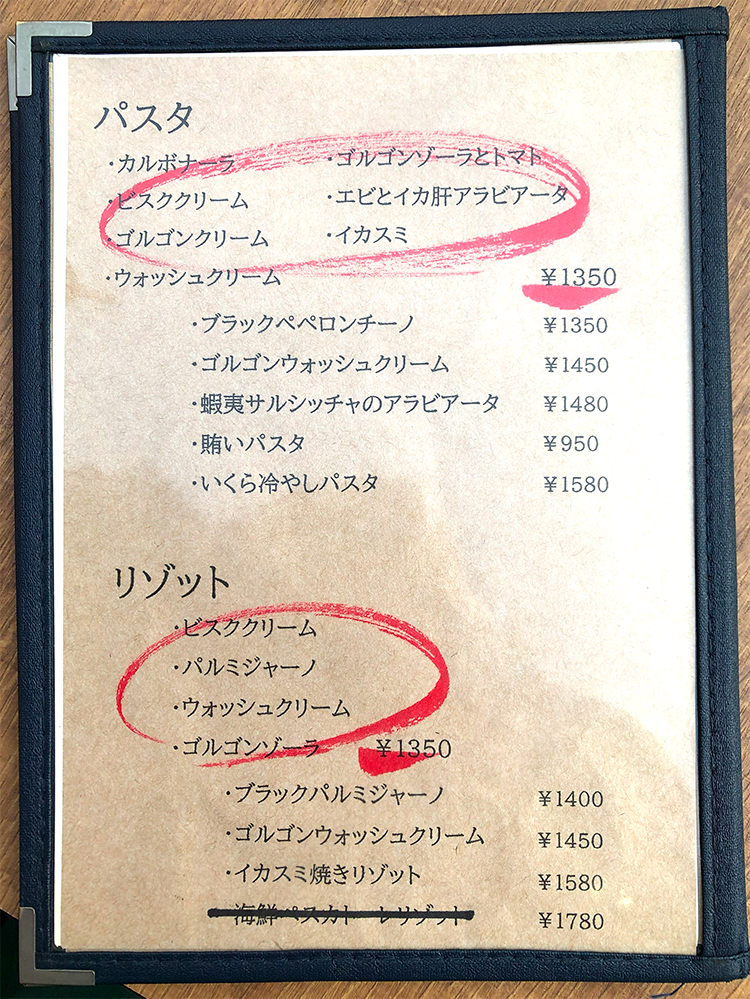 パスタ
・カルボナーラ ・ゴルゴンゾーラとトマト
・ビスククリーム ・エビとイカ肝アラビアータ
・ゴルゴンクリーム ・イカスミ
・ウォッシュクリーム ¥1350
・ブラックペペロンチーノ ¥1350
・ゴルゴンウォッシュクリーム ¥1450
・蝦夷サルシッチャのアラビアータ ¥1480
・賄いパスタ ¥950
・いくら冷やしパスタ ¥1580
リゾット
・ビスククリーム
・パルミジャーノ
・ウォッシュクリーム
・ゴルゴンゾーラ ¥1350
・ブラックパルミジャーノ ¥1400
・ゴルゴンウォッシュクリーム ¥1450
・イカスミ焼きリゾット ¥1580
・海鮮ペスカトーレリゾット ¥1780